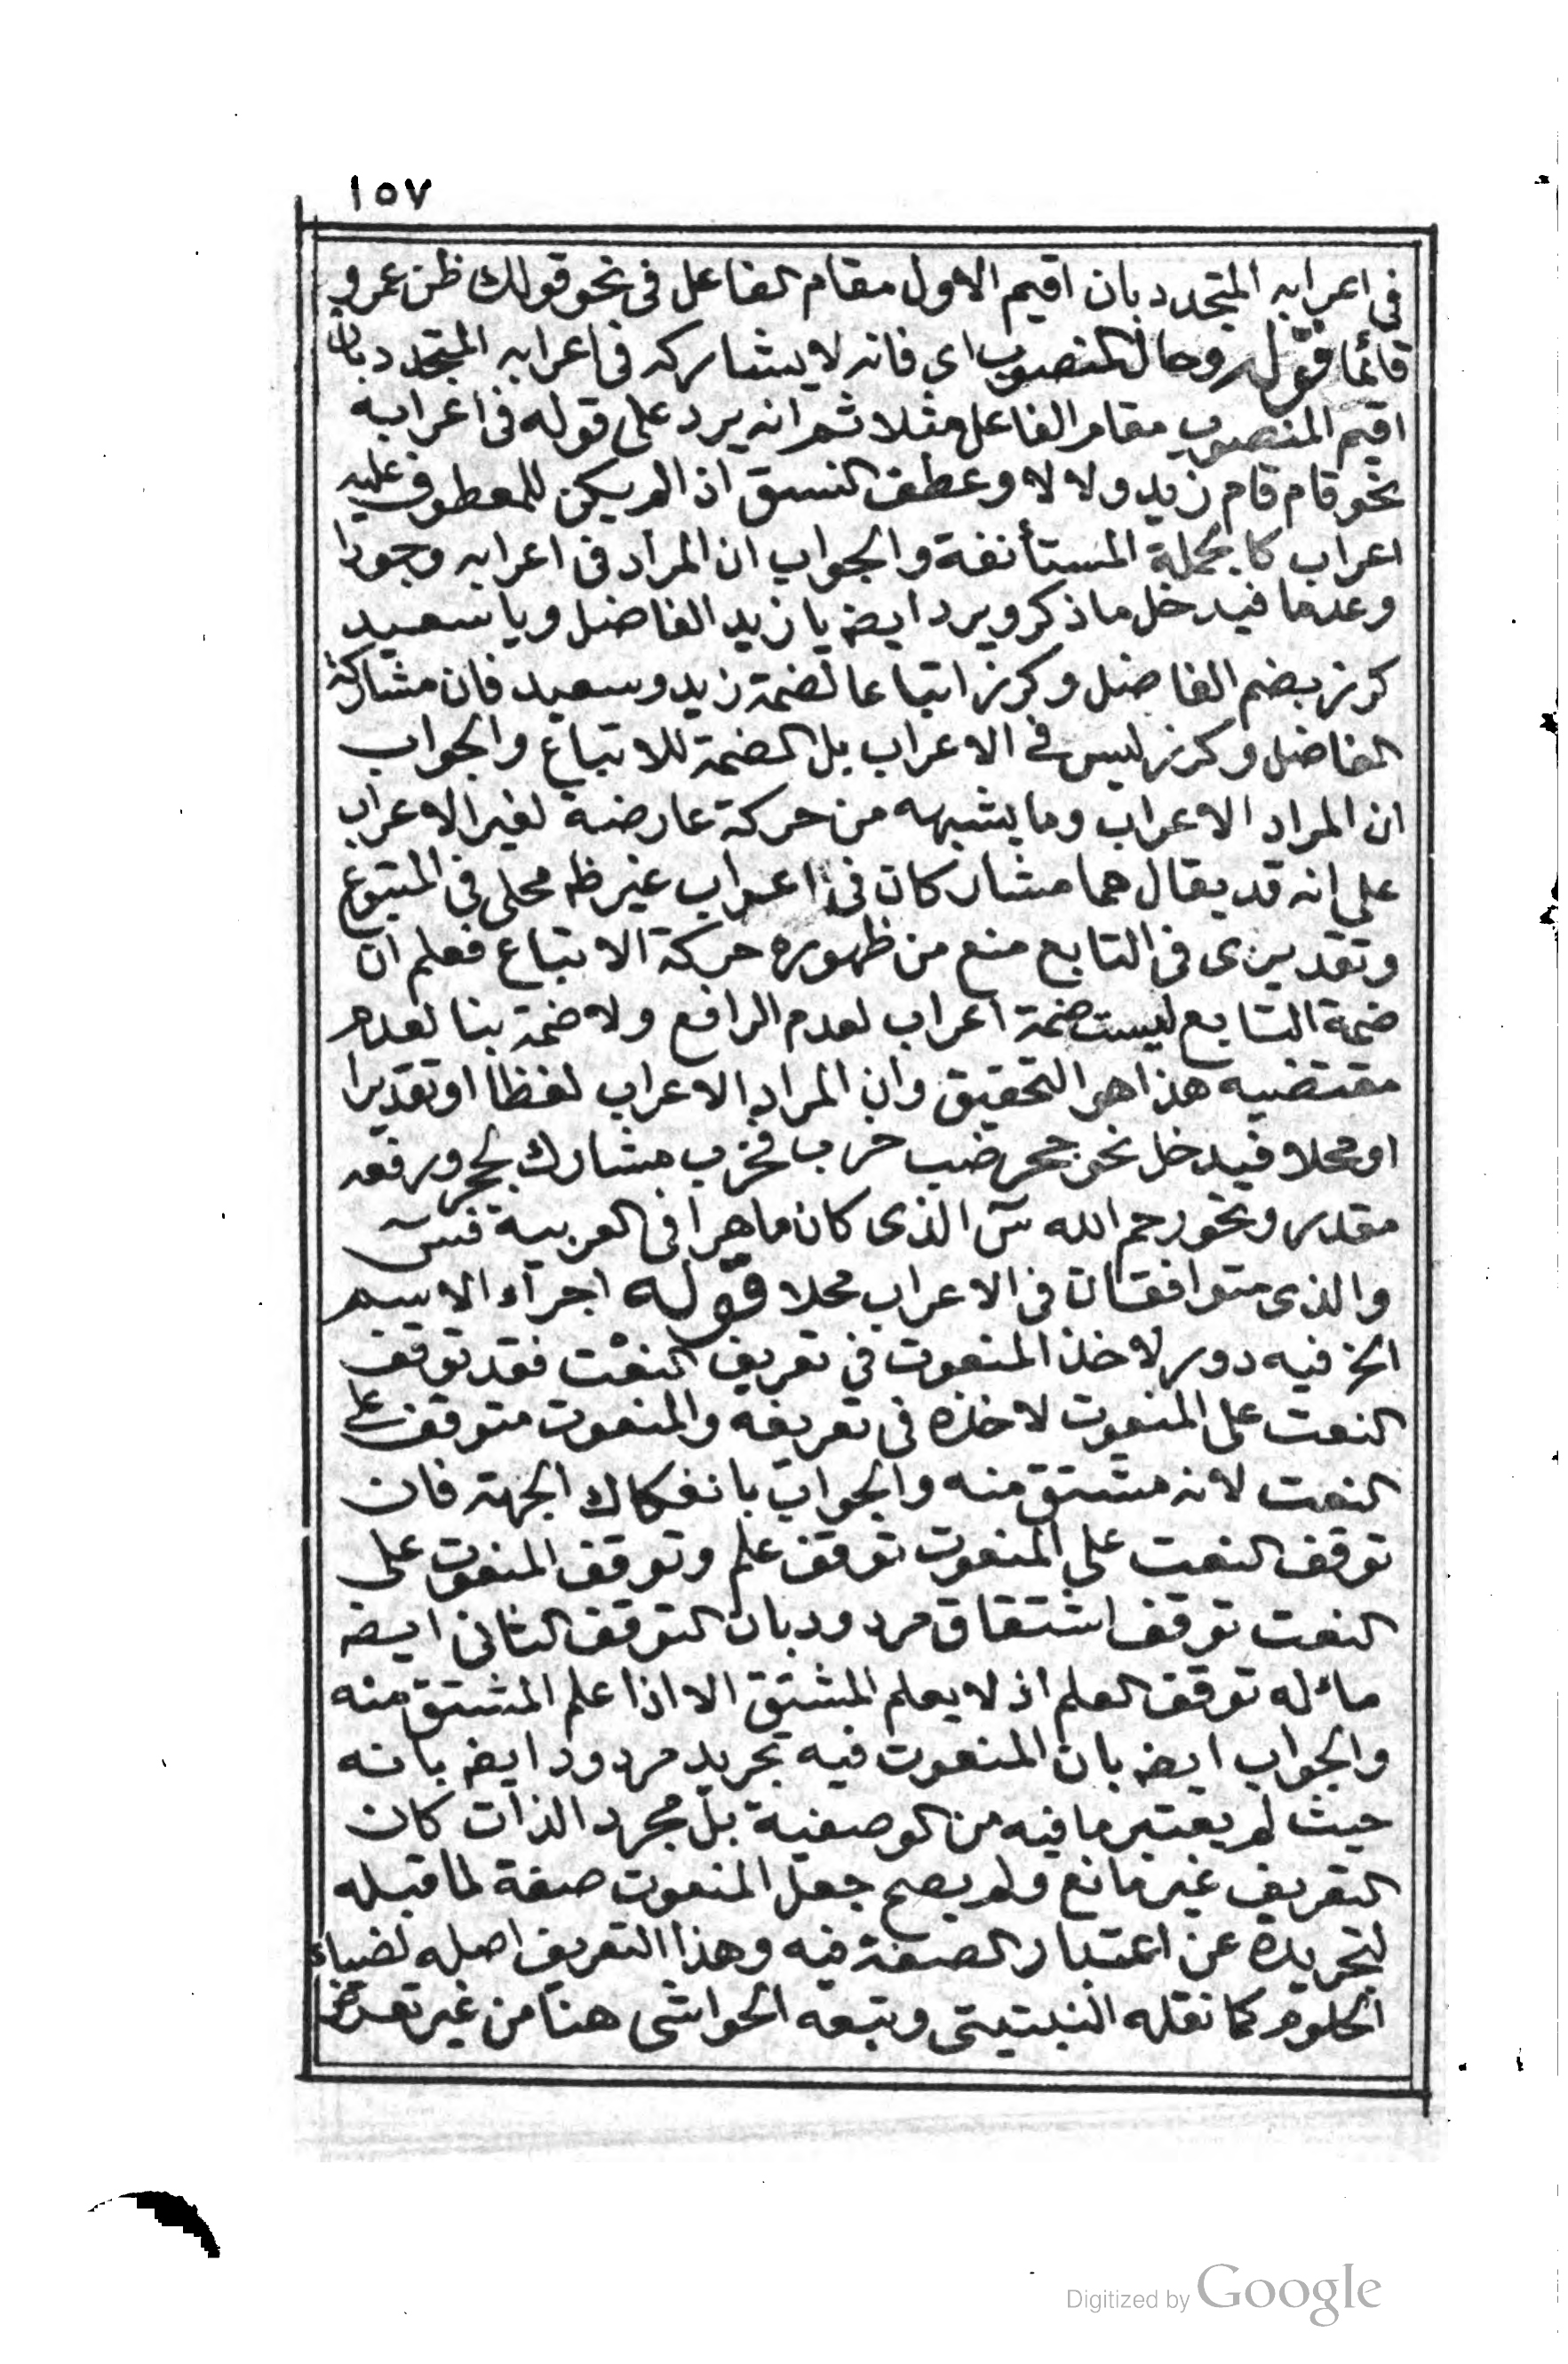 ١٥٧
في اعرابه المتجدد بان اقيم الاول مقام الفاعل في نحو قولك ظن عمرو
قائما قوله وحال المنصوب اي فانه لا يشاركه في اعرابه المتجدد بان
اقيم المنصوب مقام الفاعل مثلا ثم انه يرد على قوله في اعرابه
نحو قام قام زيد ولا لا وعطف النسق اذا لم يكن للمعطوف عليه
اعراب كالجملة المستأنفة والجواب ان المراد في اعرابه وجودا
وعدما فيدخل ما ذكر ويرد ايضه يا زيد الفاضل ويا سعيد
كرز بضم الفاضل وكرز اتباعا لضمة زيد وسعيد فان مشاركة
الفاضل وكرز ليس في الاعراب بل الضمة للاتباع والجواب
ان المراد الاعراب وما يشبهه من حركة عارضة لغير الاعراب
على انه قد يقال هما مشاركان في اعراب غير ظه محلى في المتبوع
وتقديرى في التابع منع من ظهوره حركة الاتباع فعلم ان
ضمة التابع ليست ضمة اعراب لعدم الرافع ولا ضمة بنا لعدم
مقتضيه هذا هو التحقيق وان المراد الاعراب لفظا او تقديرا
او محلا فيدخل نحو جحر ضب خرب فخرب مشارك لجحر ورفعه
مقدر ونحو رحم الله سٓ الذى كان ماهرا في العربية فسٓ
والذى متوافقان في الاعراب محلا قوله اجراء الاسم
الخ فيه دور لاخذ المنعوت في تعريف النعت فقد توقف
النعت على المنعوت لاخذه في تعريفه والمنعوت متوقف على
النعت لانه مشتق منه والجواب بانفكاك الجهة فان
توقف النعت على المنعوت توقف علم وتوقف المنعوت على
النعت توقف اشتقاق مردود بان التوقف الثانى ايضه
مآله توقف العلم اذ لا يعلم المشتق الا اذا علم المشتق منه
والجواب ايضه بان المنعوت فيه تجريد مردود ايضه بانه
حيث لم يعتبر ما فيه من الوصفية بل مجرد الذات كان
التعريف غير مانع ولم يصح جعل المنعوت صفة لما قبله
لتجريده عن اعتبار الصفة فيه وهذا التعريف اصله لضياء
الحلوم كما نقله النبتيتى وتبعه الحواشى هنا من غير تعرض
Digitized by Google